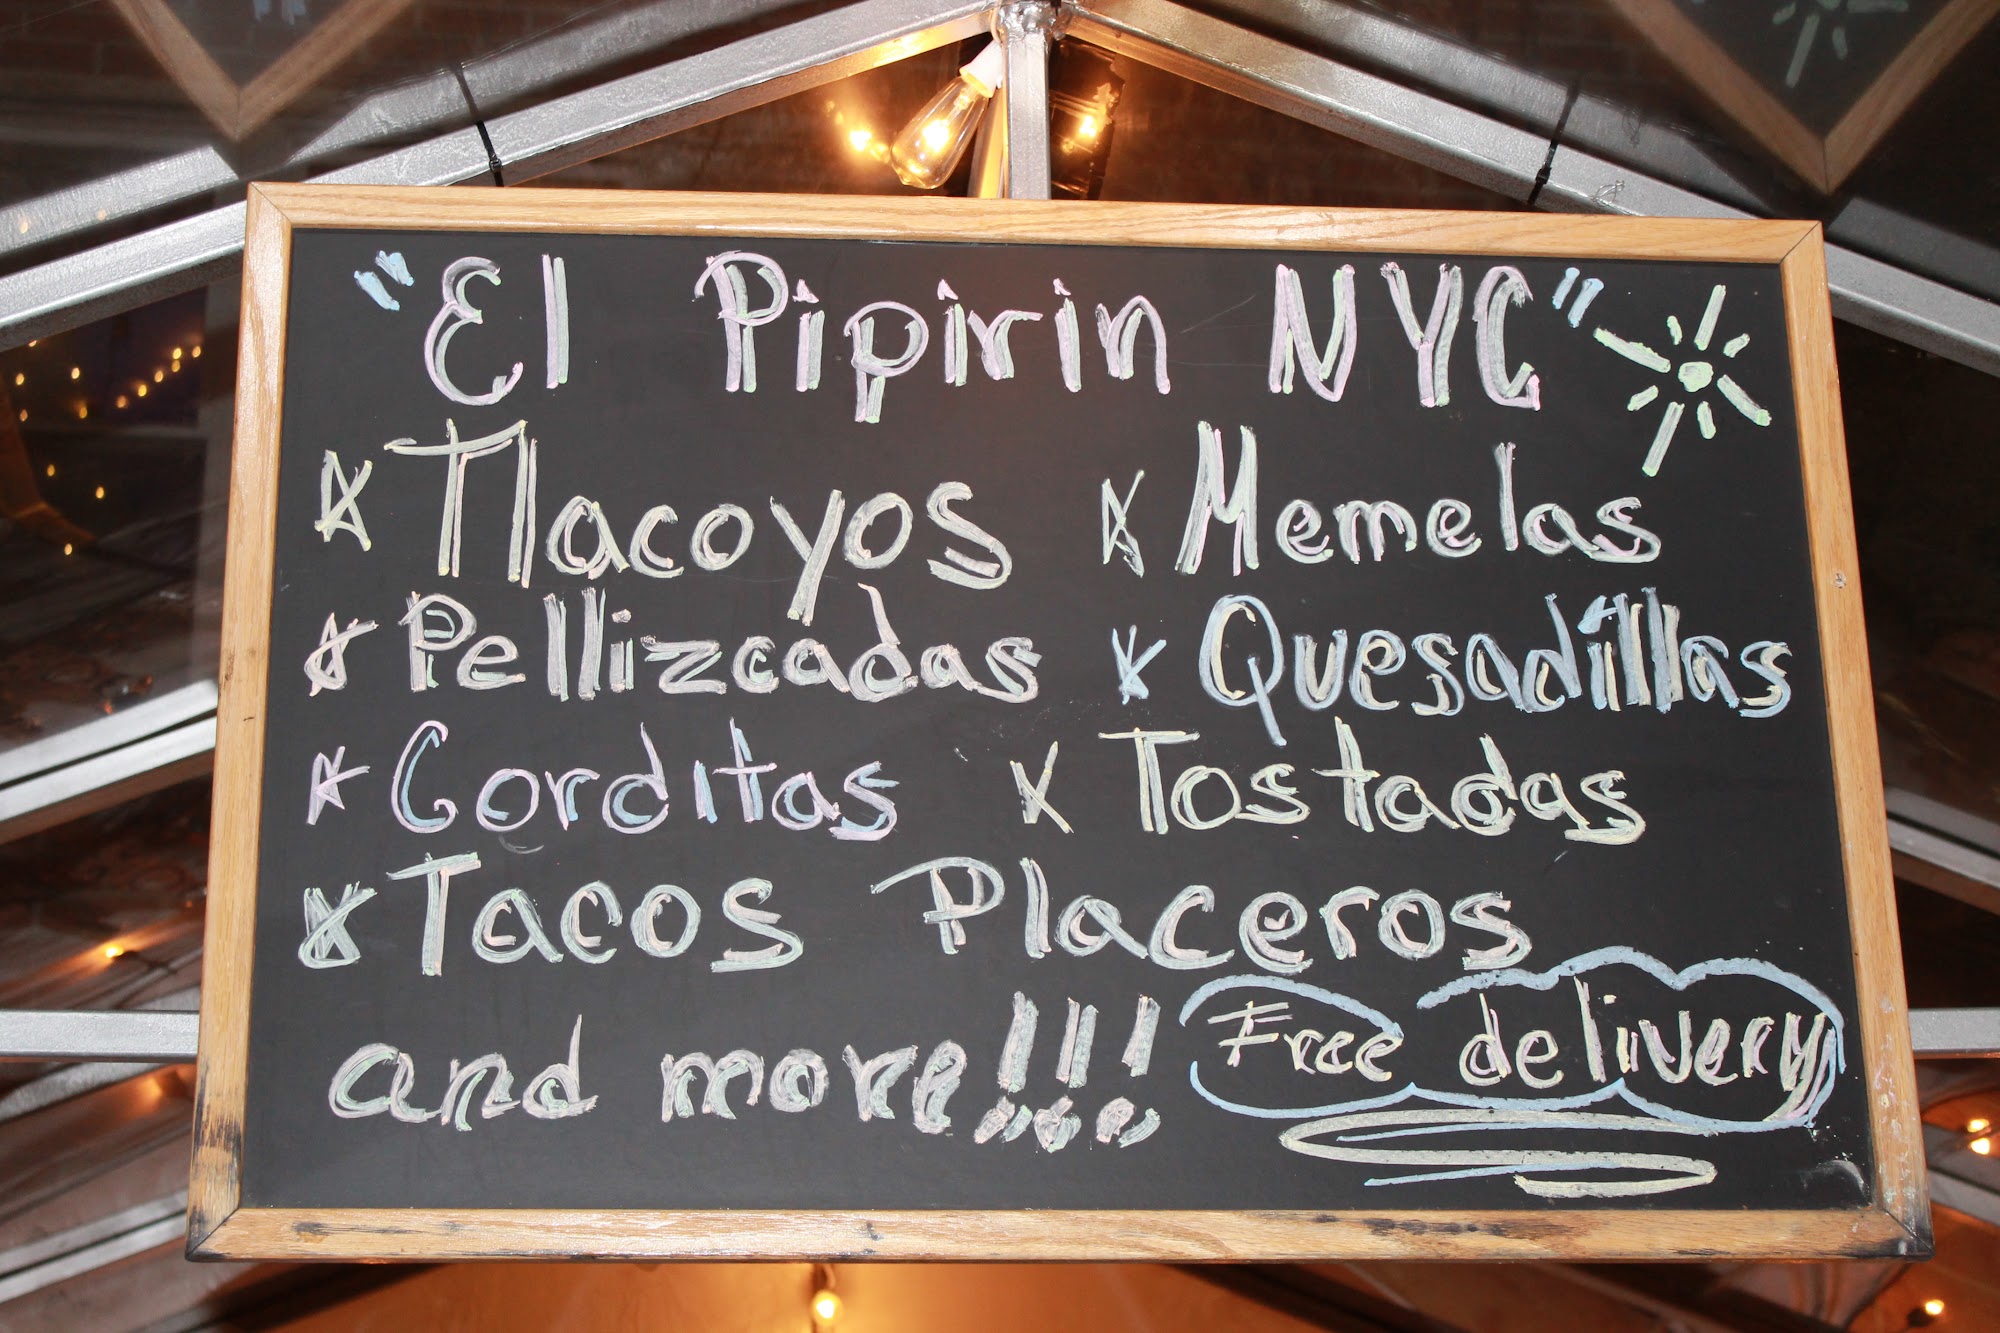 "El Pipirin NYC"
Tlacoyos Memelas
Pellizcadas Quesadillas
Gorditas Tostadas
Tacos Placeros
and more!!! Free delivery